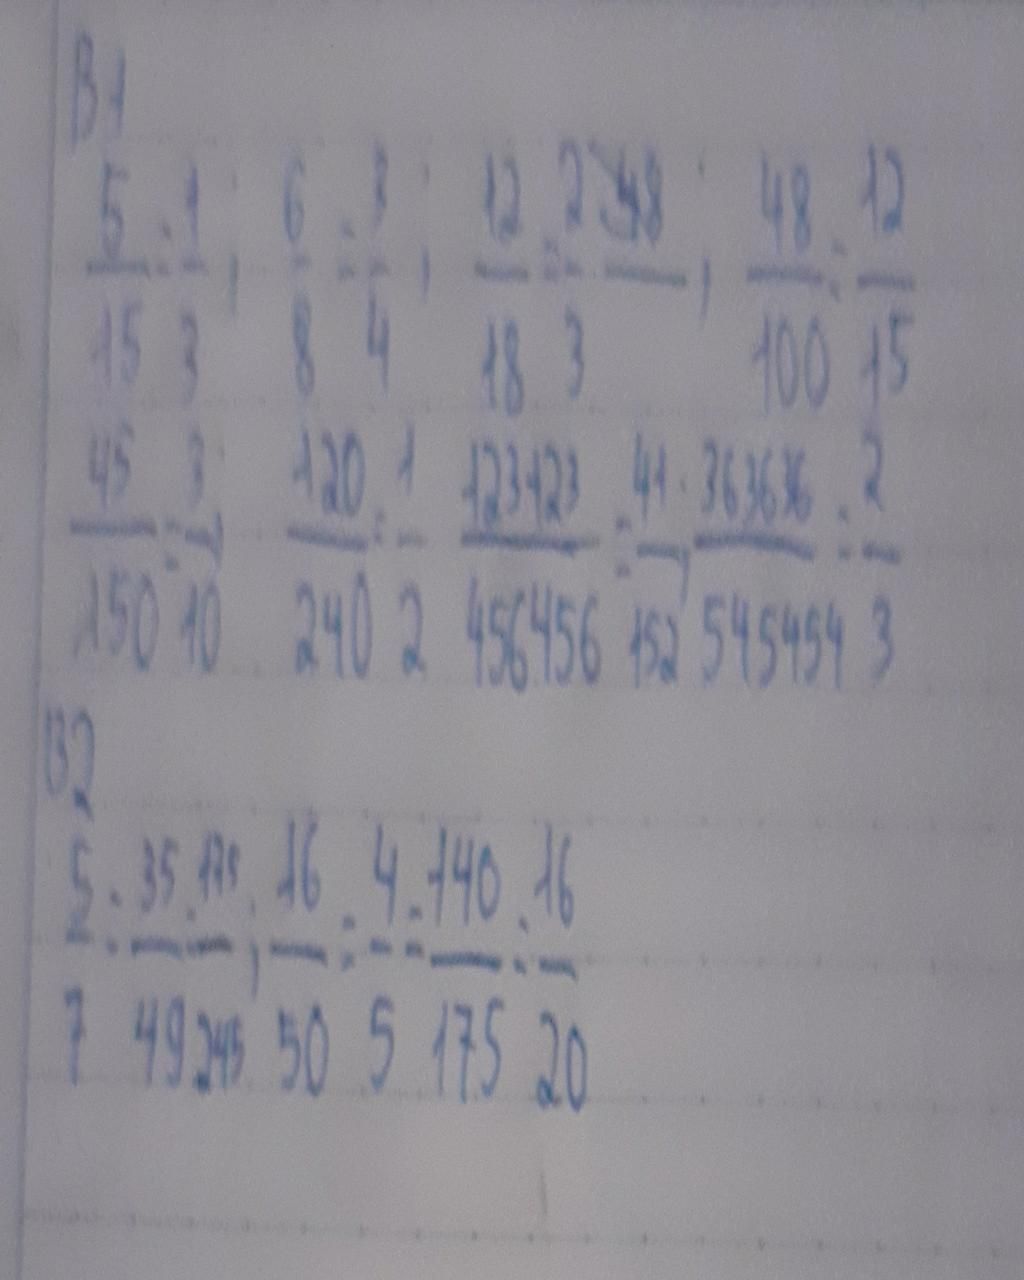 B1
5/15 = 1/3, 6/8 = 3/4, 12/18 = 2/3, 48/100 = 12/15
45/150 = 3/10, 120/240 = 1/2 123123/456456 = 41/152, 363636/545454 = 2/3
B2
5/7 = 35/49 = 175/245, 16/50 = 4/5 = 140/175 = 16/20